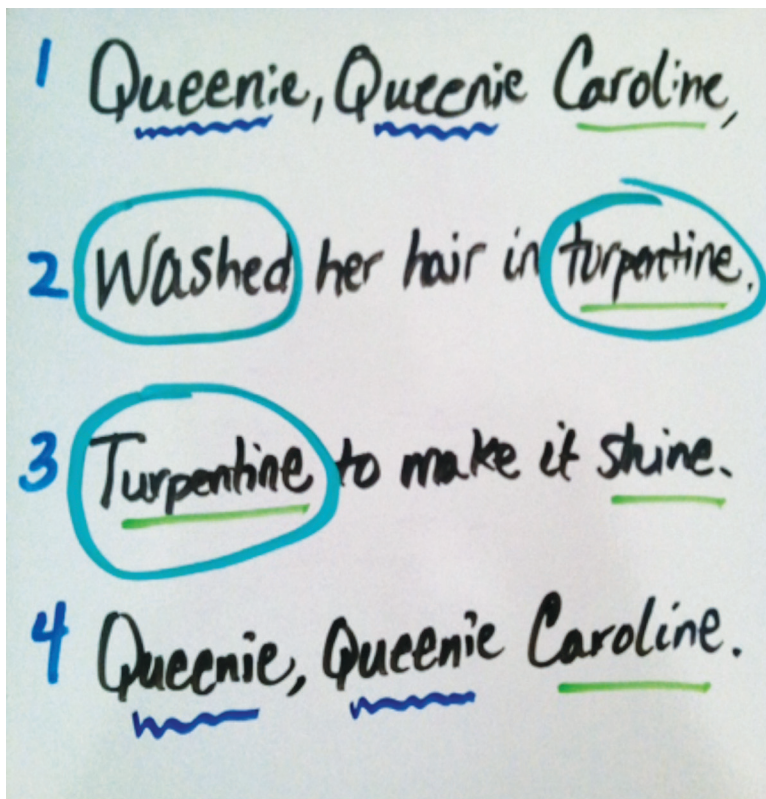 1 Queenie, Queenie Caroline,
2 Washed her hair in turpentine.
3 Turpentine to make it shine.
4 Queenie, Queenie Caroline.